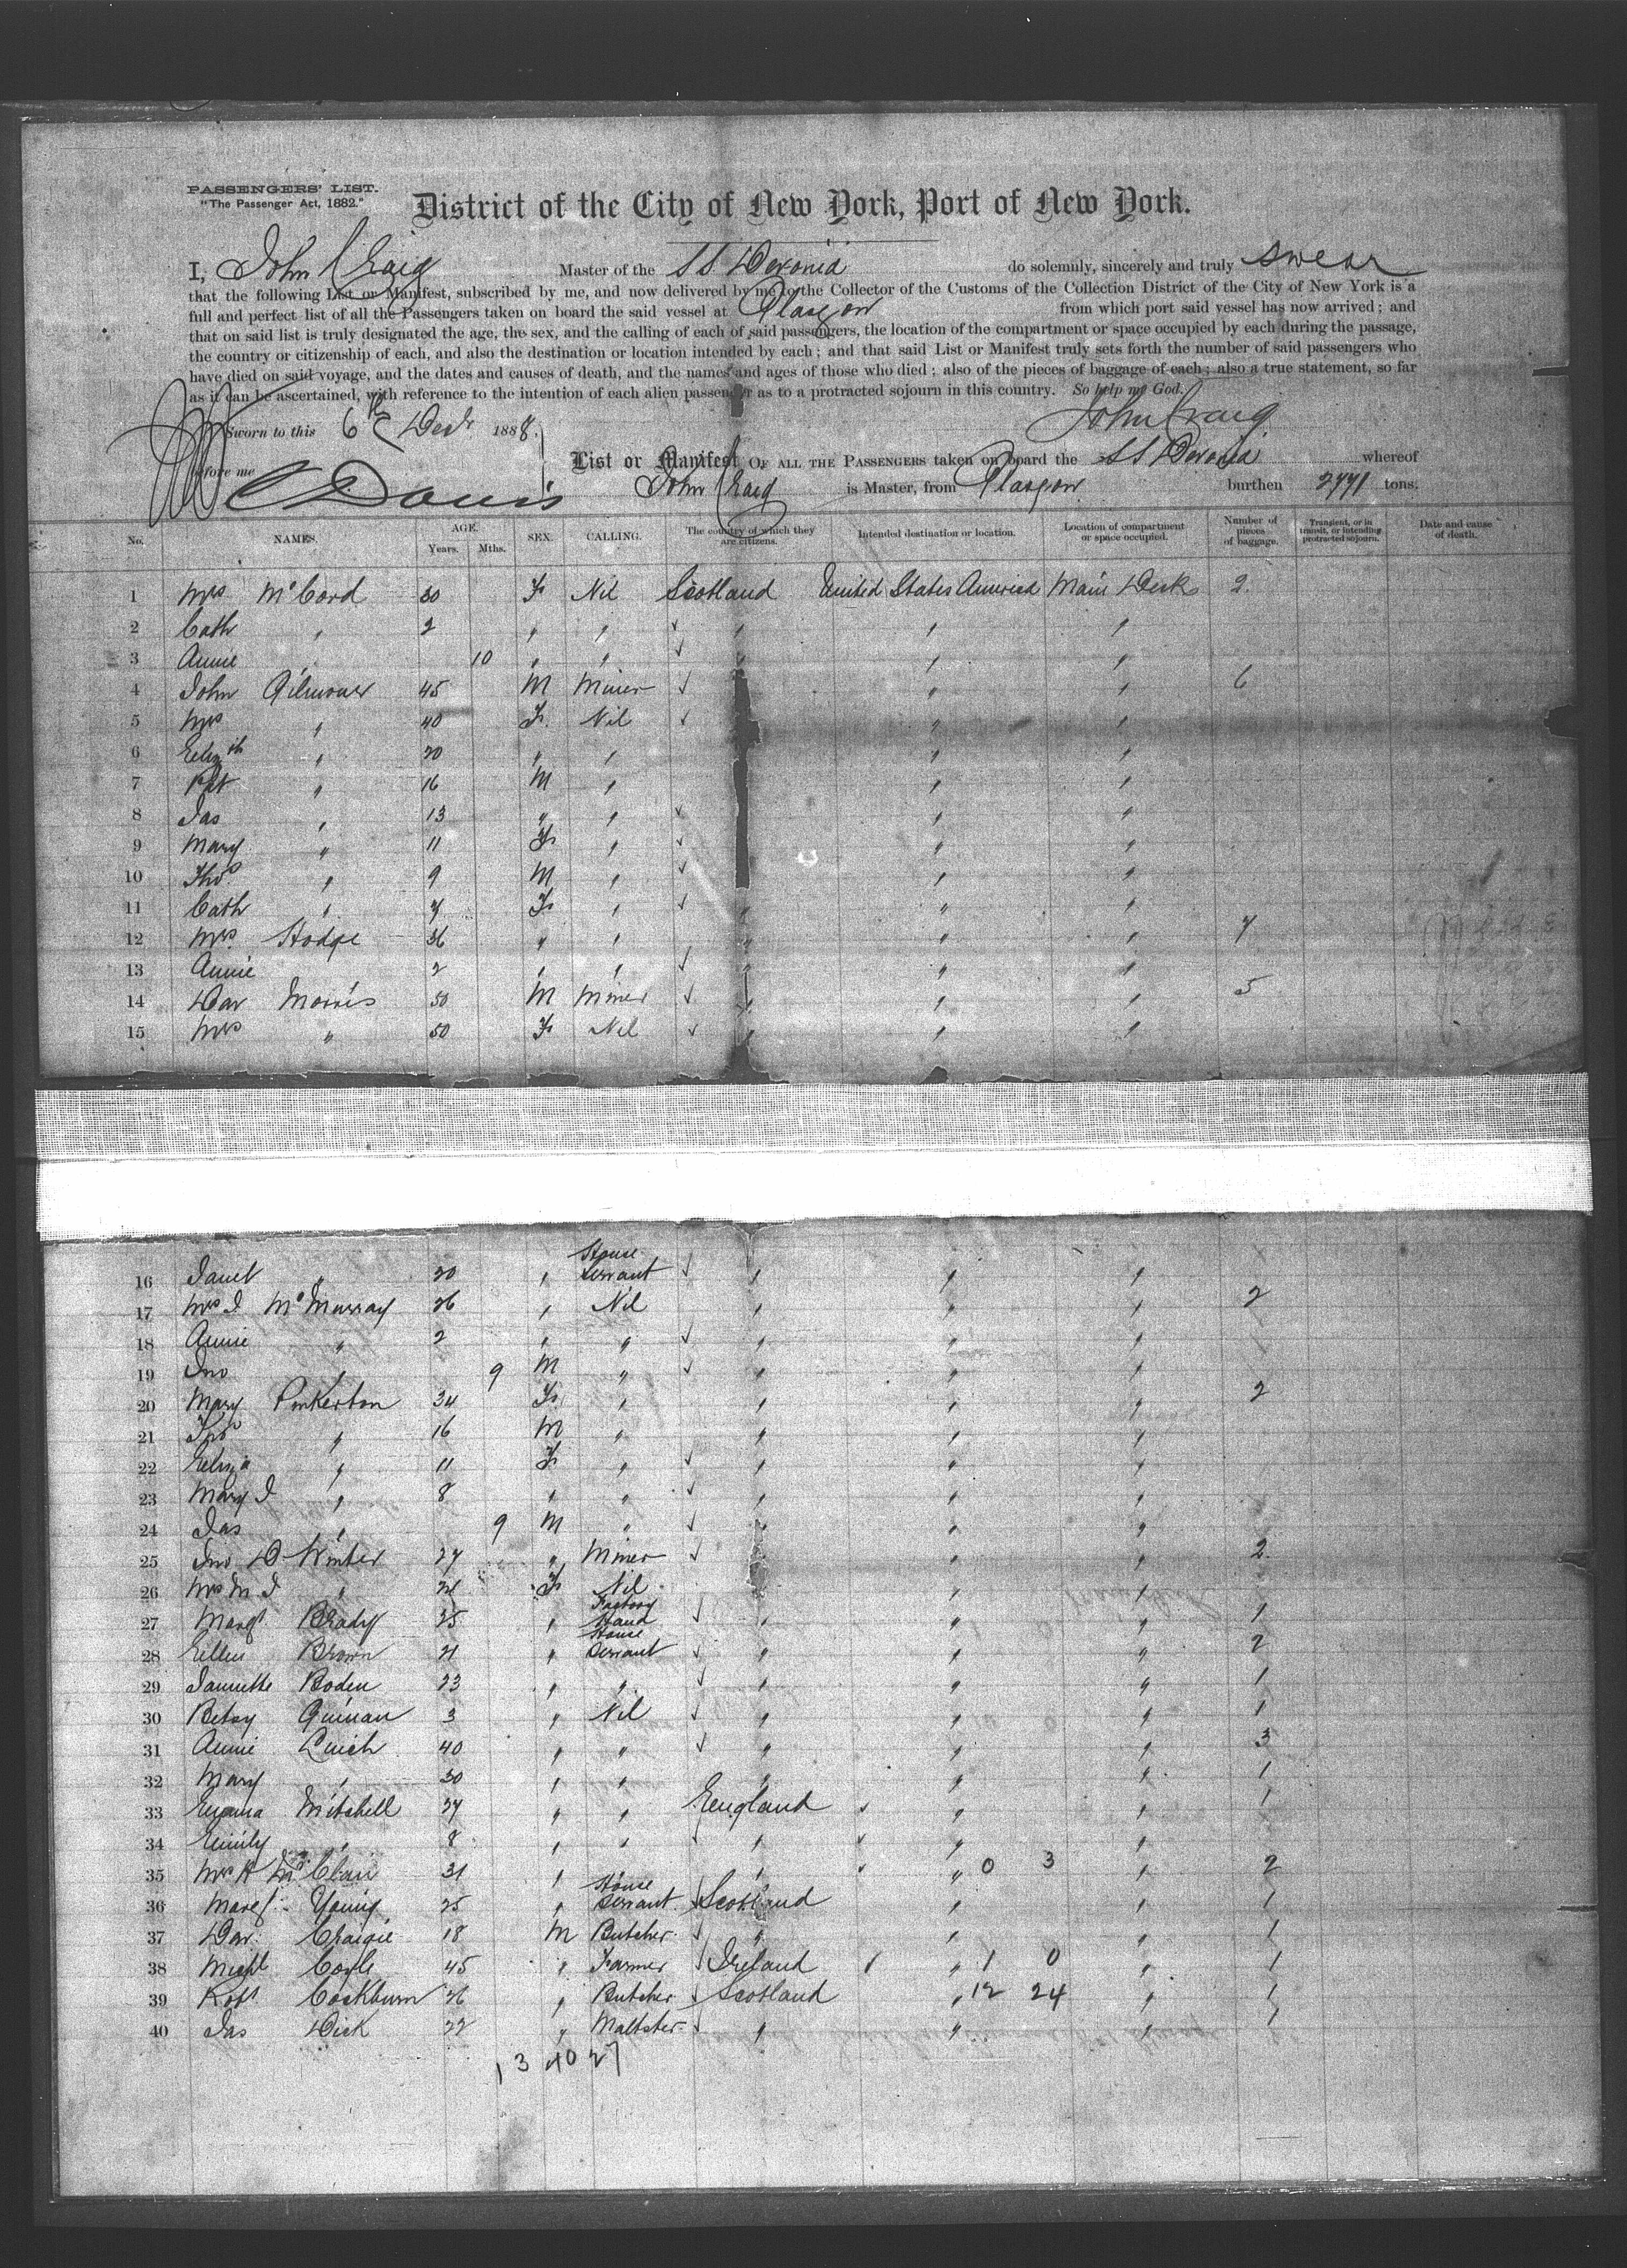 PASSENGERS' LIST.
"The Passenger Act, 1882."
District of the City of New York, Port of New York.
I, John Craig Master of the SS. Devonia do solemnly, sincerely and truly swear
that the following List or Manifest, subscribed by me, and now delivered by me to the Collector of the Customs of the Collection District of the City of New York is a
full and perfect list of all the Passengers taken on board the said vessel at Glasgow from which port said vessel has now arrived; and
that on said list is truly designated the age, the sex, and the calling of each of said passengers, the location of the compartment or space occupied by each during the passage,
the country or citizenship of each, and also the destination or location intended by each; and that said List or Manifest truly sets forth the number of said passengers who
have died on said voyage, and the dates and causes of death, and the names and ages of those who died; also of the pieces of baggage of each; also a true statement, so far
as it can be ascertained, with reference to the intention of each alien passenger as to a protracted sojourn in this country. So help my God.
John Craig
Sworn to this 6th Decr 1888.
before me Davis
List or Manifest OF ALL THE PASSENGERS taken on board the SS Devonia whereof
John Craig is Master, from Glasgow burthen 2771 tons.
No. NAMES. AGE. Years. Mths. SEX. CALLING. The country of which they are citizens. Intended destination or location. Location of compartment or space occupied. Number of pieces of baggage. Transient, or in transit, or intending protracted sojourn. Date and cause of death.
1 Mrs McCord 30 F Nil Scotland United States America Main Deck 2
2 Cath " 2 " " " " "
3 Annie " 10 " " " " "
4 John Gilmour 45 M Miner " " 6
5 Mrs " 40 F. Nil " "
6 Elizth " 20 " " " "
7 Pat " 16 M " " "
8 Jas " 13 " " " "
9 Mary " 11 F " " "
10 Thos " 9 M " " "
11 Cath " 7 F " " " "
12 Mrs Hodge 36 " " " " " 7
13 Annie 2 " " " " "
14 Dav Morris 50 M Miner " " " 5
15 Mrs " 50 F Nil " " "
16 Janet " 20 " House Servant " " "
17 Mrs J McMurray 26 " Nil " " " 2
18 Annie " 2 " " " " "
19 Jno " 9 M " " " "
20 Mary Pinkerton 34 F " " " " 2
21 Thos " 16 M " " " "
22 Eliza " 11 F " " " "
23 Mary J " 8 " " " " "
24 Jas " 9 M " " " "
25 Jno D Winter 27 " Miner " " " 2
26 Mrs M J " 24 F Nil " "
27 Margt. Brady 25 " Factory Hand " " " 1
28 Ellen Brown 21 " House Servant " " " 2
29 Jannette Boden 23 " " " " " 1
30 Betsy Guinan 3 " Nil " " " 1
31 Annie Linch 40 " " " " " 3
32 Mary " 30 " " " " " 1
33 Emma Mitchell 27 " " England " " 1
34 Emily " 8 " " " " "
35 Mrs H McClair 31 " " " 0 3 " 2
36 Margt. Young 25 " House Servant Scotland " " 1
37 Dav. Craigie 18 M Butcher " " " 1
38 Michl Coyle 45 " Farmer Ireland " 1 0 " 1
39 Robt Cockburn 26 " Butcher Scotland " 12 24 " 1
40 Jas Dick 22 " Maltster " " " 1
13 40 27